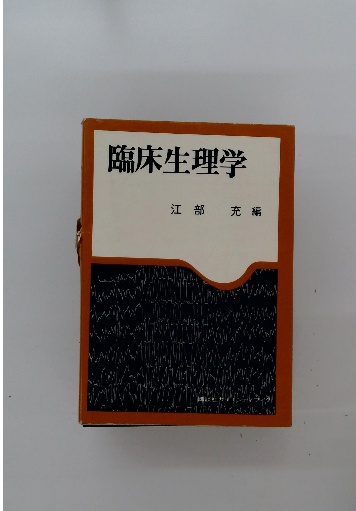 臨床生理学
江部 充 編